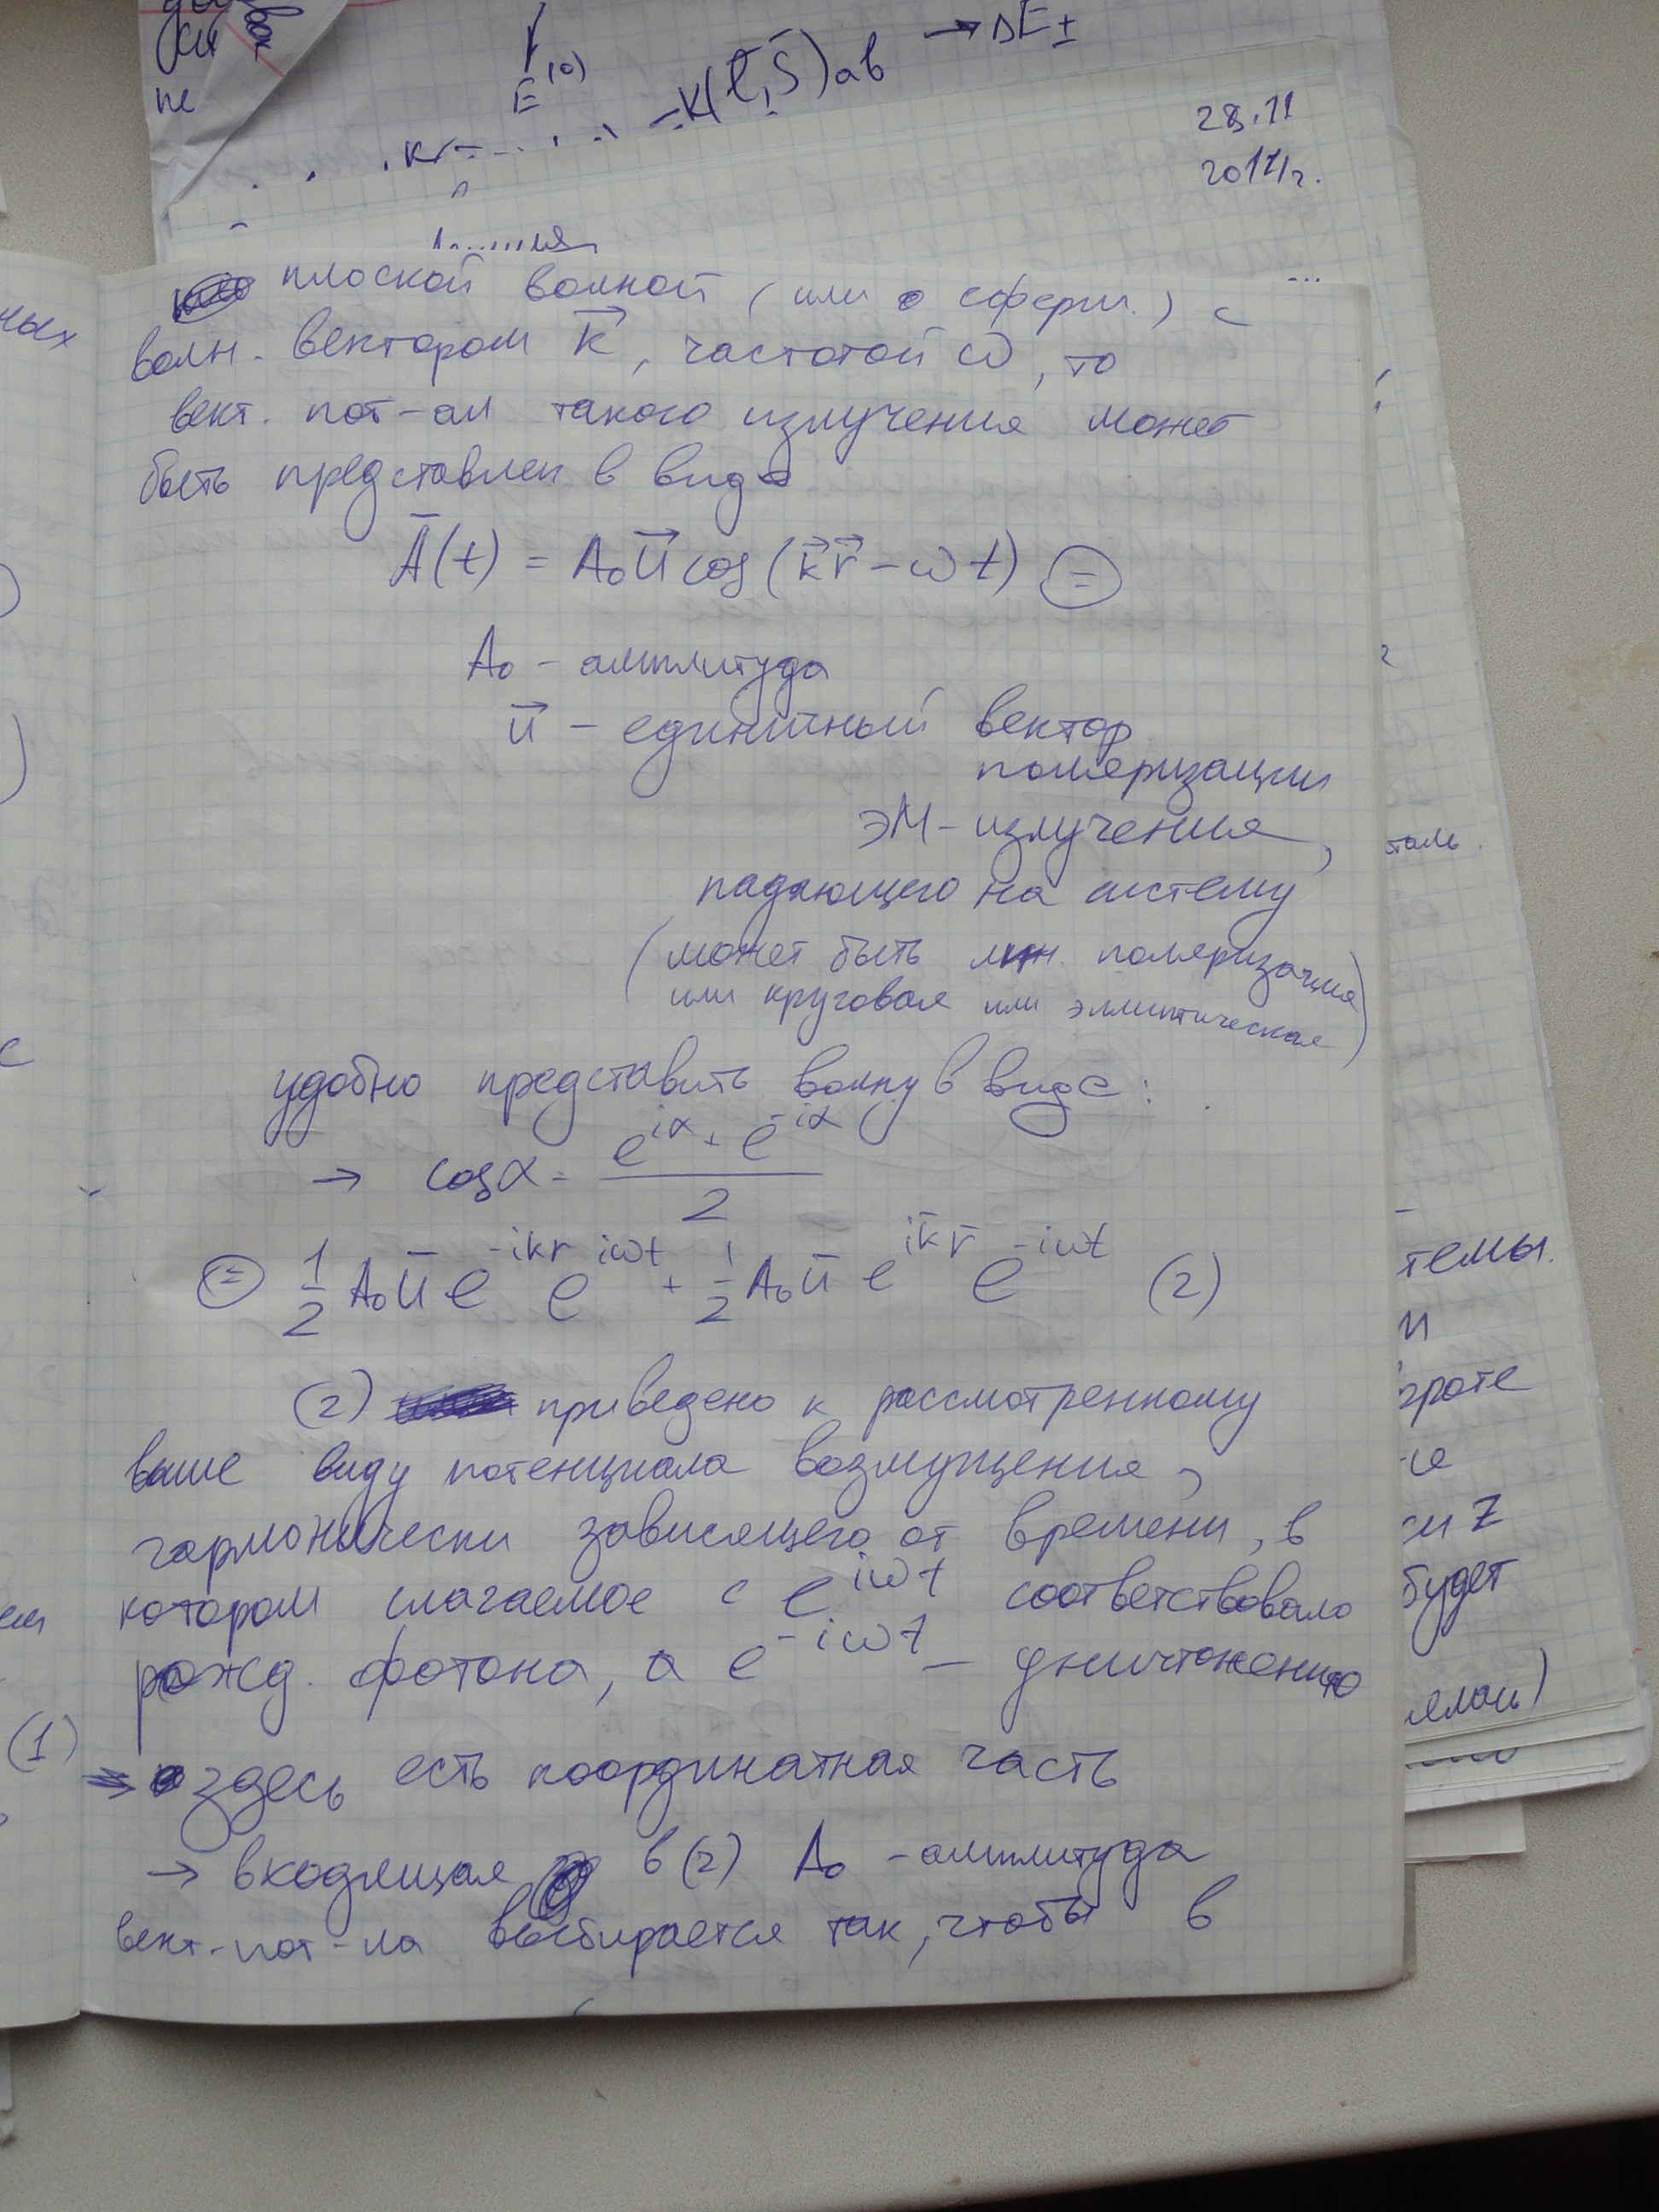 не
E⁽⁰⁾
-K(l⃗,S⃗)ab → ΔE±
28.11
плоской волной (или сферич.) с
волн. вектором k⃗, частотой ω, то
вект. пот-ал такого излучения может
быть представлен в виде
A̅(t) = A₀u⃗ cos(k⃗r⃗ - ωt) =
A₀ - амплитуда
u⃗ - единичный вектор
поляризации
ЭМ-излучения,
падающего на систему
(может быть лин. поляризация
или круговая или эллиптическая)
удобно представить волну в виде:
→ cosα = (e^{iα} + e^{-iα})/2
= 1/2 A₀u̅ e^{-ikr} e^{iωt} + 1/2 A₀u̅ e^{ik̅r̅} e^{-iωt} (2)
(2) приведено к рассмотренному
выше виду потенциала возмущения,
гармонически зависящего от времени, в
котором слагаемое с e^{iωt} соответствовало
рожд. фотона, а e^{-iωt} - уничтожению
(1)
здесь есть координатная часть
→ входящая в (2) A₀ - амплитуда
вект-пот-ла выбирается так, чтобы в
ных
таль.
темы.
Z
будет